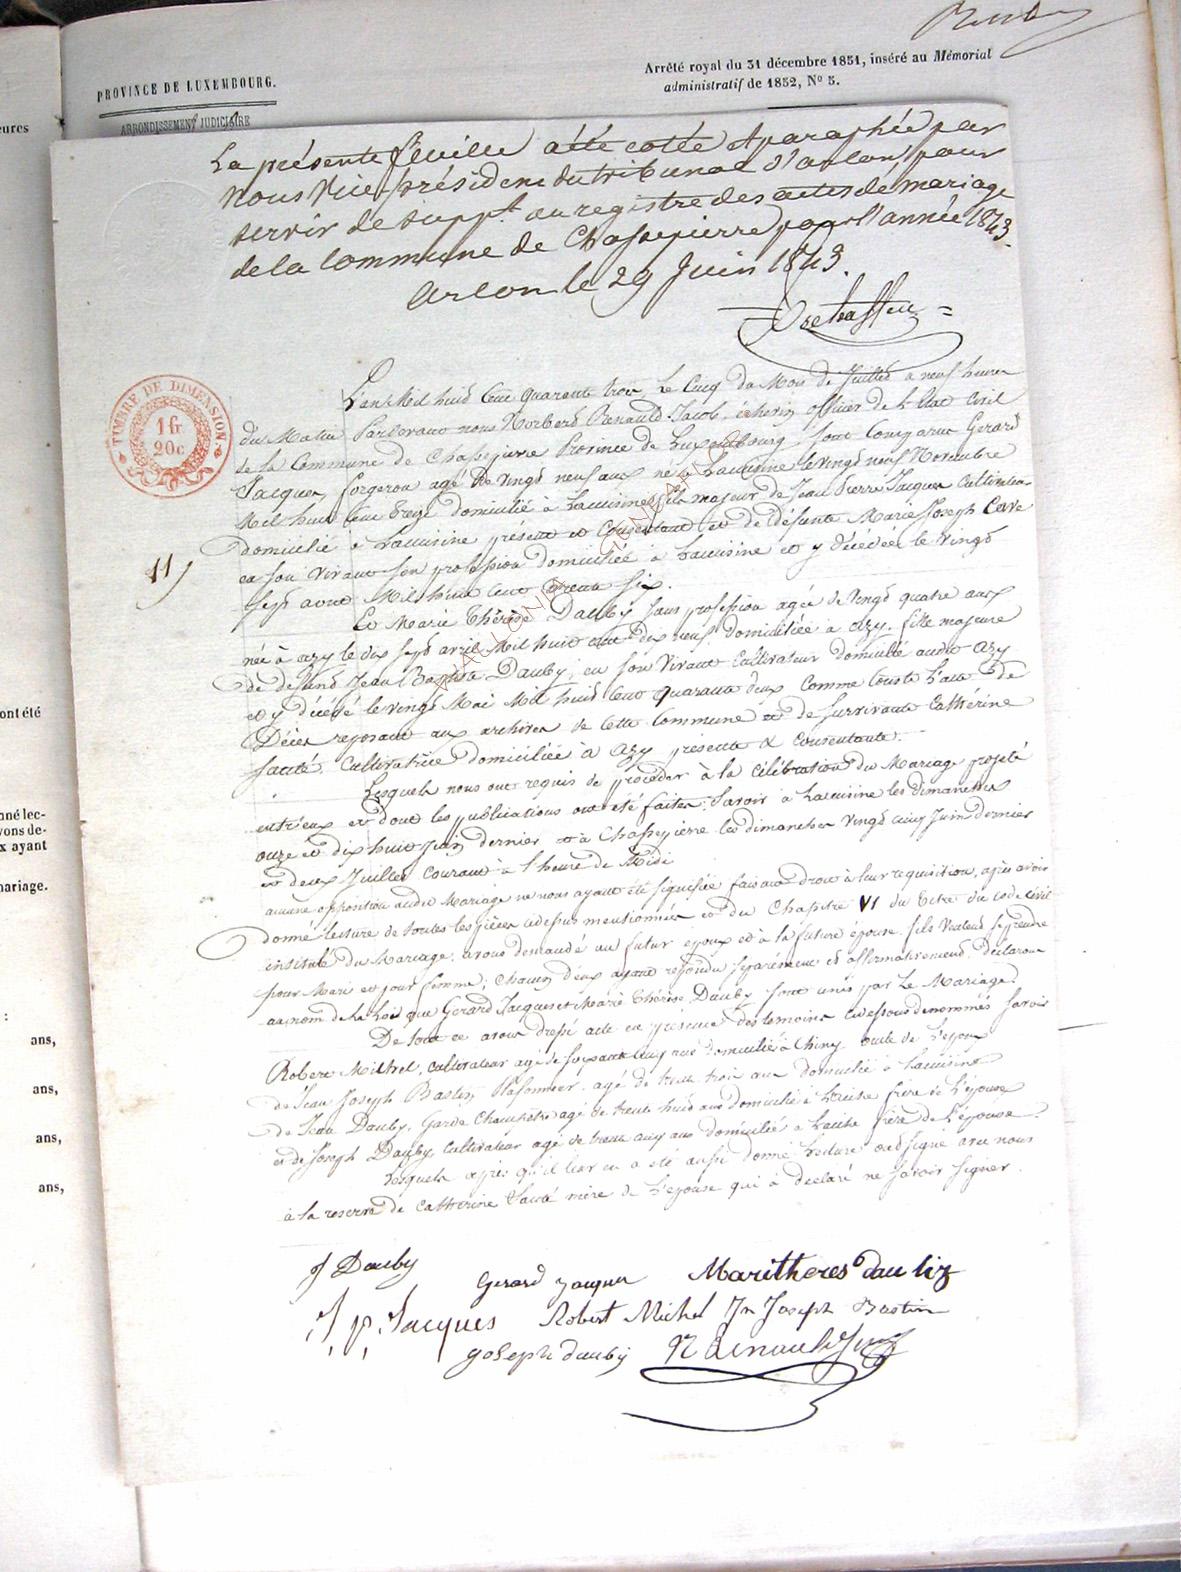 PROVINCE DE LUXEMBOURG.
ARRONDISSEMENT JUDICIAIRE
Arrêté royal du 31 décembre 1851, inséré au Mémorial
administratif de 1852, No 5.
La présente feuille a été cotée et paraphée par
nous Vice-président du tribunal d'arlon, pour
servir de suppt. au registre des actes de mariage
de la Commune de Chassepierre pour l'année 1843.
Arlon le 29 Juin 1843.
TIMBRE DE DIMENSION
1 fr
20c
11)
L'an Mil huit Cent quarante trois, Le Cinq du Mois de Juillet à neuf heures
du Matin Pardevant nous Norbert Renauld Jacob, échevin officier de l'Etat Civil
de la Commune de Chassepierre Province de Luxembourg, sont Comparus Gerard
Jacques, forgeron agé de vingt neuf ans né à Lacuisine le vingt neuf Novembre
Mil huit Cent treize domicilié à Lacuisine fils majeur de Jean Pierre Jacques Cultivateur
domicilié à Lacuisine présent et Consentant et de défunte Marie Joseph
en son vivant sen profession domiciliée à Lacuisine et y décédée le vingt
sept aout Mil huit Cent trente six.
Et Marie Thérèse Dauby sans profession agée de vingt quatre ans
née à azy le dix sept avril Mil huit cent dix neuf domiciliée à azy. fille majeure
de defunt Jean Baptiste Dauby, en son vivant Cultivateur domicilié audit azy
et y décédé le vingt Mai Mil huit Cent quarante deux Comme Conste l'acte de
Décès reposant aux archives de cette Commune et de survivante Cathérine
Santé Cultivatrice domiciliée à Azy présente & Consentante.
Lesquels nous ont requis de procéder à la célébration du Mariage projeté
entr'eux et dont les publications ont été faites: Savoir à Lacuisine les dimanches
onze et dix huit Juin dernier et à Chassepierre les dimanches vingt cinq Juin dernier
et deux Juillet Courant à l'heure de Midi
aucune opposition audit Mariage ne nous ayant été signifiée faisant droit à leur requisition, après avoir
donné lecture de toutes les pièces cidessus mentionnées et du Chapitre VI du titre du Code Civil
intitulé du Mariage, avons demandé au futur époux et à la future épouse s'ils veulent se prendre
pour Mari et pour femme; Chacun d'eux ayant répondu séparément et affirmativement, déclarons
au nom de la Loi que Gerard Jacques et Marie Thérèse Dauby sont unis par Le Mariage.
De tout ce avons dressé acte en présence des temoins cidessous denommés savoir
Robert Michel, cultivateur agé de soixante cinq ans domicilié à Chiny oncle de l'époux
de Jean Joseph Bastin, Plafonneur agé de trente trois ans domicilié à Lacuisine
de Jean Dauby, Garde Champêtre agé de trente huit ans domicilié à frère de l'épouse
et de Joseph Dauby Cultivateur agé de trente cinq ans domicilié à frère de l'épouse.
Lesquels après qu'il leur en a été aussi donné lecture ont signé avec nous
à la reserve de Catherine Santé mère de l'épouse qui a declaré ne savoir signer.
J Dauby
Gerard Jacques
Marithéres dauliz
J, P, Jacques
Robert Michel
Jn Joseph Bastin
Joseph dauby
N Renauld
eures
ont été
nné lec-
vons de-
x ayant
ariage.
:
ans,
ans,
ans,
ans,